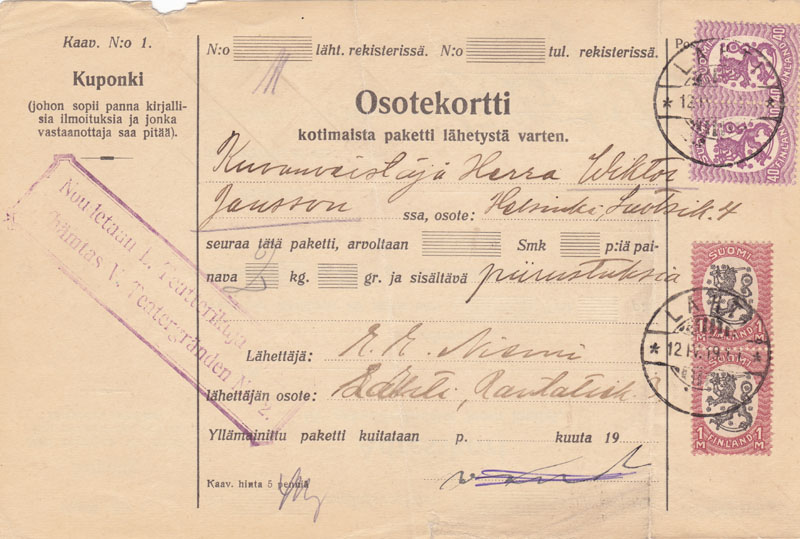 Kaav. N:o 1.
Kuponki
(johon sopii panna kirjalli-
sia ilmoituksia ja jonka
vastaanottaja saa pitää).
Nou letaan L. Teatterikuja
V. Teatergränden N 2.
N:o läht. rekisterissä. N:o tul. rekisterissä.
Osotekortti
kotimaista paketti lähetystä varten.
Kuvanveistäjä Herra Wiktor
Jansson ssa, osote: Helsinki, Luotsik. 4
seuraa tätä paketti, arvoltaan Smk p:iä pai-
nava kg. gr. ja sisältävä piirustuksia
Lähettäjä:
lähettäjän osote: Lahti,
Yllämainittu paketti kuitataan p. kuuta 19
Kaav. hinta 5 penniä
40 40
SUOMI FINLAND
40 40
SUOMI FINLAND
LAHTI
SUOMI
1M FINLAND 1M
LAHTI
12.IV.19
SUOMI
1M FINLAND 1M